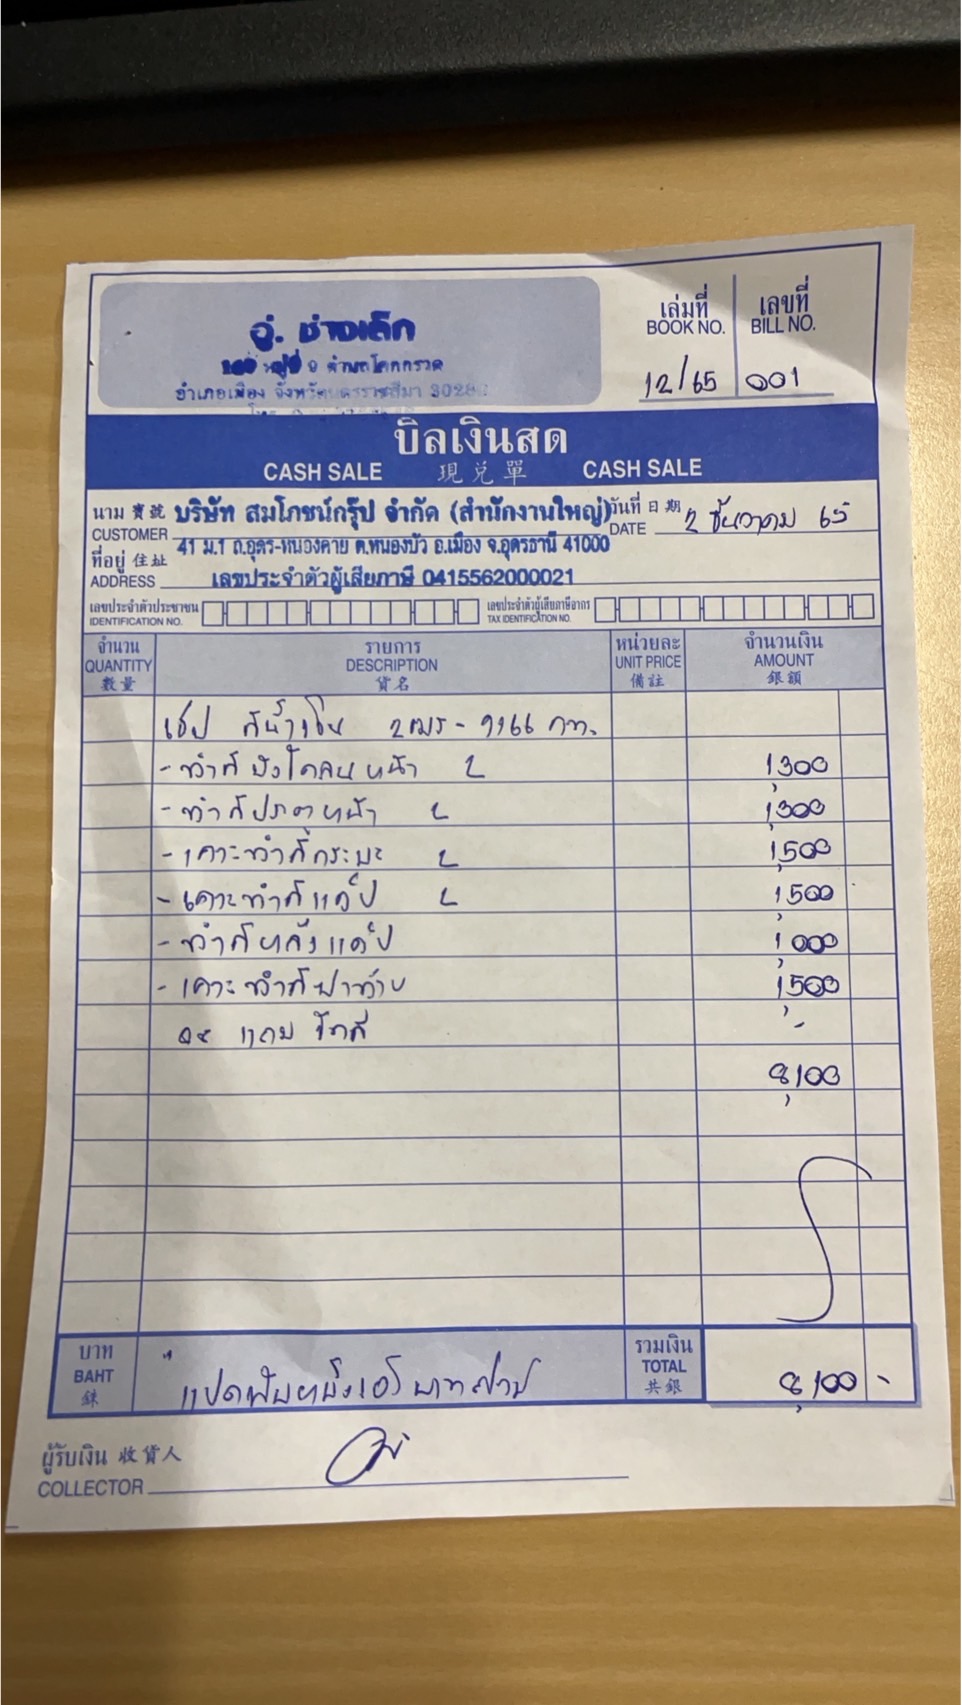 อู่. ช่างเล็ก
หมู่ที่ 9 ตำบลโคกกรวด
อำเภอเมือง จังหวัดนครราชสีมา 3028
เล่มที่ เลขที่
BOOK NO. BILL NO.
12/65 001
บิลเงินสด
CASH SALE 現兌單 CASH SALE
นาม 寶號 บริษัท สมโภชน์กรุ๊ป จำกัด (สำนักงานใหญ่) วันที่ 日期 2 ธันวาคม 65
CUSTOMER DATE
ที่อยู่ 住址 41 ม.1 ถ.อุดร-หนองคาย ต.หนองบัว อ.เมือง จ.อุดรธานี 41000
ADDRESS เลขประจำตัวผู้เสียภาษี 0415562000021
เลขประจำตัวประชาชน เลขประจำตัวผู้เสียภาษีอากร
IDENTIFICATION NO. TAX IDENTIFICATION NO.
จำนวน รายการ หน่วยละ จำนวนเงิน
QUANTITY DESCRIPTION UNIT PRICE AMOUNT
數量 貨名 備註 銀額
สีน้ำเงิน 2ฒร-9166 กท.
- ทำสีบังโคลนหน้า L 1,300
- ทำสีประตูหน้า L 1,300
- เคาะทำสีกระบะ L 1,500
- เคาะทำสีแค๊ป L 1,500
- ทำสีหลังแค๊ป 1,000
- เคาะทำสีฝาท้าย 1,500
แถม -
8,100
บาท รวมเงิน
BAHT แปดพันหนึ่งร้อยบาทถ้วน TOTAL 8,100 -
銖 共銀
ผู้รับเงิน 收貨人
COLLECTOR